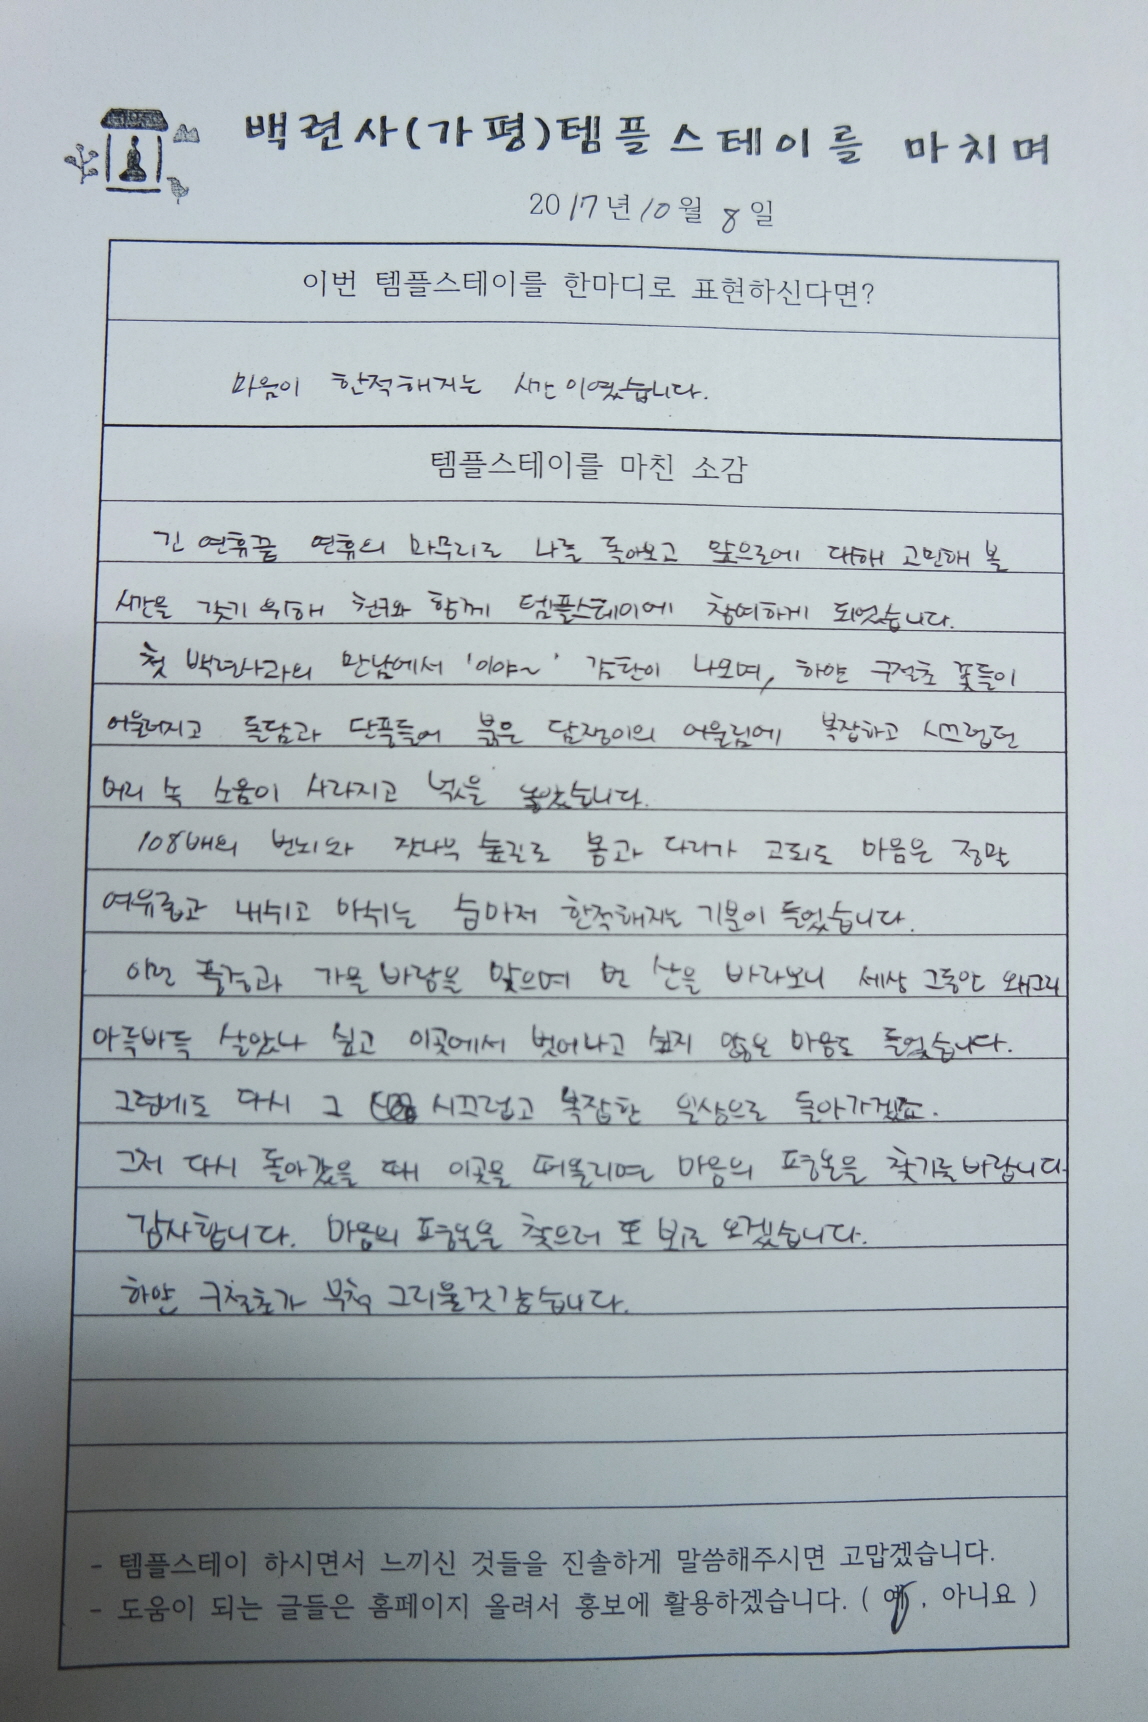 백련사(가평)템플스테이를 마치며
2017년 10월 8일
이번 템플스테이를 한마디로 표현하신다면?
마음이 한적해지는 시간이였습니다.
템플스테이를 마친 소감
긴 연휴끝 연휴의 마무리로 나를 돌아보고 앞으로에 대해 고민해 볼
시간을 갖기 위해 친구와 함께 템플스테이에 참여하게 되었습니다.
첫 백련사과의 만남에서 '이야~' 감탄이 나오며, 하얀 구절초 꽃들이
어울러지고 돌담과 단풍들어 붉은 담쟁이의 어울림에 복잡하고 시끄럽던
머리 속 소음이 사라지고 넋을 놓았습니다.
108배의 번뇌와 잣나무 숲길로 몸과 다리가 고되도 마음은 정말
여유롭과 내쉬고 마쉬는 숨마저 한적해지는 기분이 들었습니다.
이런 풍경과 가을 바람을 맞으며 먼 산을 바라보니 세상 그동안 왜그리
아득바득 살았나 싶고 이곳에서 벗어나고 싶지 않은 마음도 들었습니다.
그럼에도 다시 그 시끄럽고 복잡한 일상으로 돌아가겠죠.
그저 다시 돌아갔을 때 이곳을 떠올리며 마음의 평온을 찾기를 바랍니다.
감사합니다. 마음의 평온을 찾으러 또 뵈로 오겠습니다.
하얀 구절초가 무척 그리울것 같습니다.
- 템플스테이 하시면서 느끼신 것들을 진솔하게 말씀해주시면 고맙겠습니다.
- 도움이 되는 글들은 홈페이지 올려서 홍보에 활용하겠습니다. ( 예 , 아니요 )